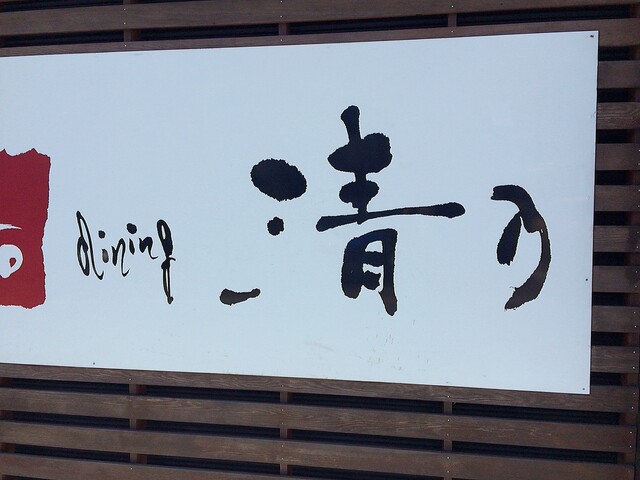 dining 清の